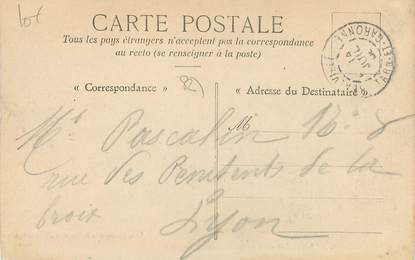 Lot
CARTE POSTALE
Tous les pays étrangers n'acceptent pas la correspondance
au recto (se renseigner à la poste)
« Correspondance » 82
« Adresse du Destinataire »
M
Mr Pascalin No 8
rue des Penitents de la
Croix Lyon
TARN-ET-GARONNE
JUIL